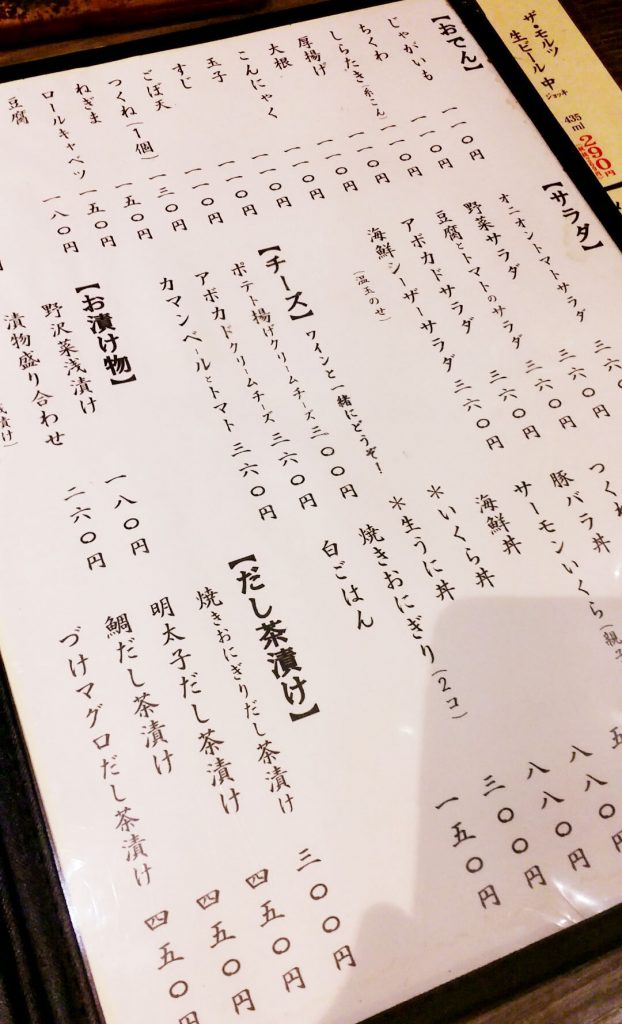 ザ・モルツ
生ビール 中 ジョッキ
435ml
290円
【おでん】
じゃがいも 一一〇円
ちくわ 一一〇円
しらたき(糸こん) 一一〇円
厚揚げ 一一〇円
大根 一一〇円
こんにゃく 一一〇円
玉子 一一〇円
すじ 一一〇円
ごぼ天 一三〇円
つくね(1個) 一五〇円
ねぎま 一五〇円
ロールキャベツ 一八〇円
豆腐
【サラダ】
オニオントマトサラダ 三六〇円
野菜サラダ 三六〇円
豆腐とトマトのサラダ 三六〇円
アボカドサラダ 三六〇円
海鮮シーザーサラダ 三六〇円
(温玉のせ)
【チーズ】 ワインと一緒にどうぞ!
ポテト揚げクリームチーズ 三〇〇円
アボカドクリームチーズ 三六〇円
カマンベールとトマト 三六〇円
【お漬け物】
野沢菜浅漬け 一八〇円
漬物盛り合わせ 二六〇円
つくね
豚バラ丼
サーモンいくら(親子
海鮮丼 五
*いくら丼 八八〇円
*生うに丼 八八〇円
焼きおにぎり(2コ) 三〇〇円
白ごはん 一五〇円
【だし茶漬け】
焼きおにぎりだし茶漬け 三〇〇円
明太子だし茶漬け 四五〇円
鯛だし茶漬け 四五〇円
づけマグロだし茶漬け 四五〇円